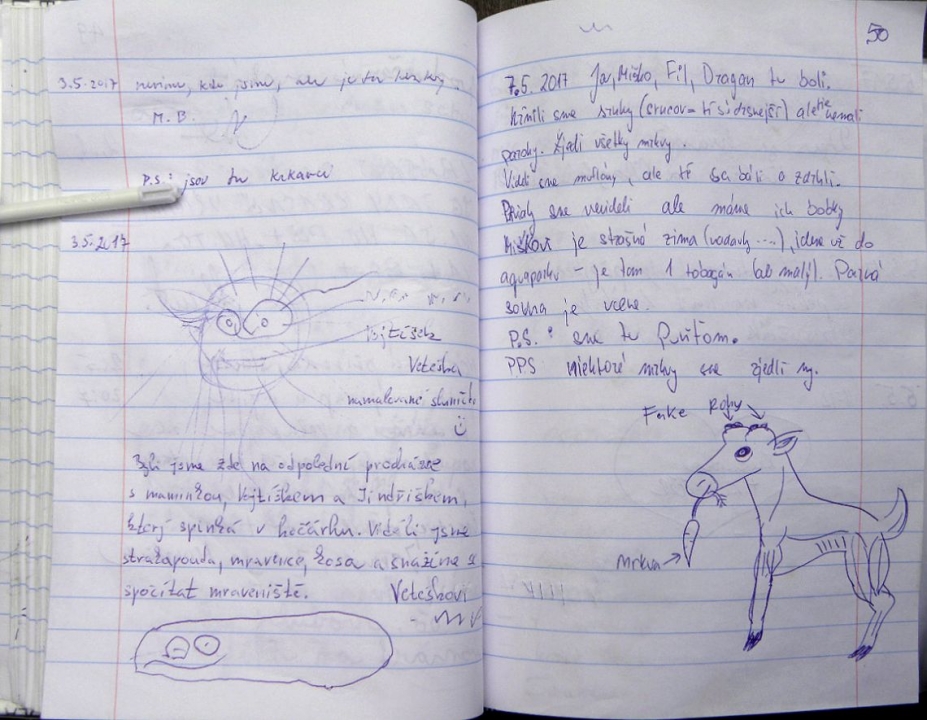 3.5.2017 nevíme, kde jsme, ale je tu hezky.
M.B.
P.S.: jsou tu krkavci
3.5.2017
Vítíšek
Veteška
namalované sluníčko
Byli jsme zde na odpolední procházce
s maminkou, Vítíškem a Jindříškem,
který spinká v kočárku. Viděli jsme
strakapouda, mravence, kosa a snažíme se
spočítat mraveniště. Veteškovi
50
7.5. 2017 Ja, Miško, Fil, Dragan tu boli.
Kŕmili sme srnky (srncov = tí sú drsnejší) ale nemali
parohy. Zjedli všetky mrkvy.
Videli sme muflóny, ale tí sa báli a zdrhli.
sme nevideli ale máme ich bobky
Miškovi je strašná zima (vodavky ....), ideme už do
aquaparku - je tam 1 tobogán (ale malý). Parná
sauna je v cene.
P.S.: sme tu
PPS niektoré mrkvy sme zjedli my.
Fake Rohy
Mrkva